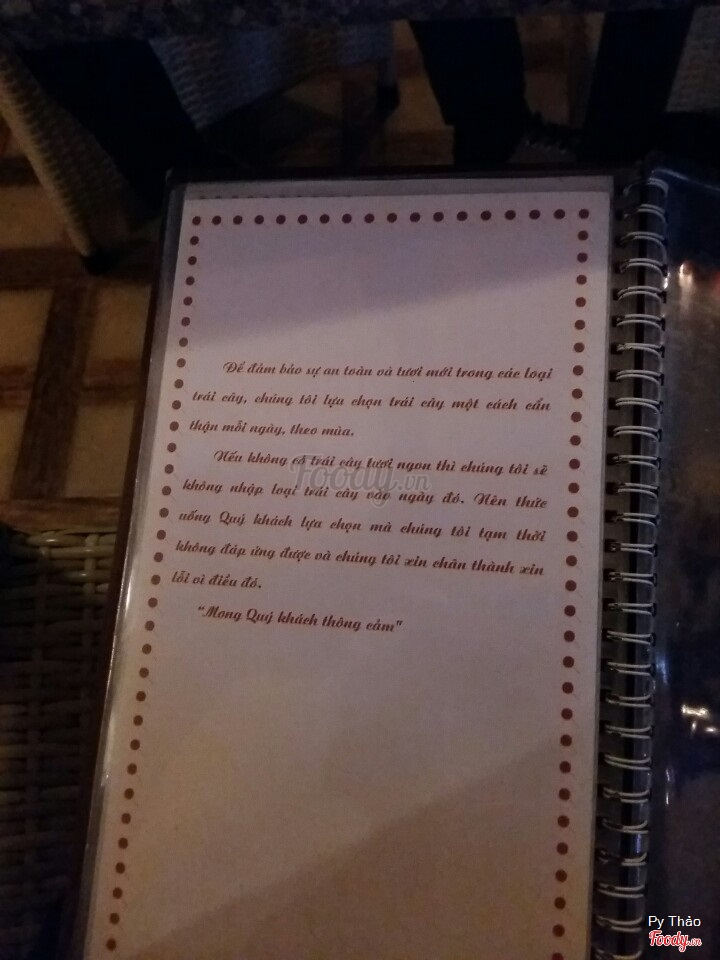 Để đảm bảo sự an toàn và tươi mới trong các loại
trái cây, chúng tôi lựa chọn trái cây một cách cẩn
thận mỗi ngày, theo mùa.
Nếu không có trái cây tươi ngon thì chúng tôi sẽ
không nhập loại trái cây vào ngày đó. Nên thức
uống Quý khách lựa chọn mà chúng tôi tạm thời
không đáp ứng được và chúng tôi xin chân thành xin
lỗi vì điều đó.
"Mong Quý khách thông cảm"
Foody.vn
Py Thảo
Foody.vn